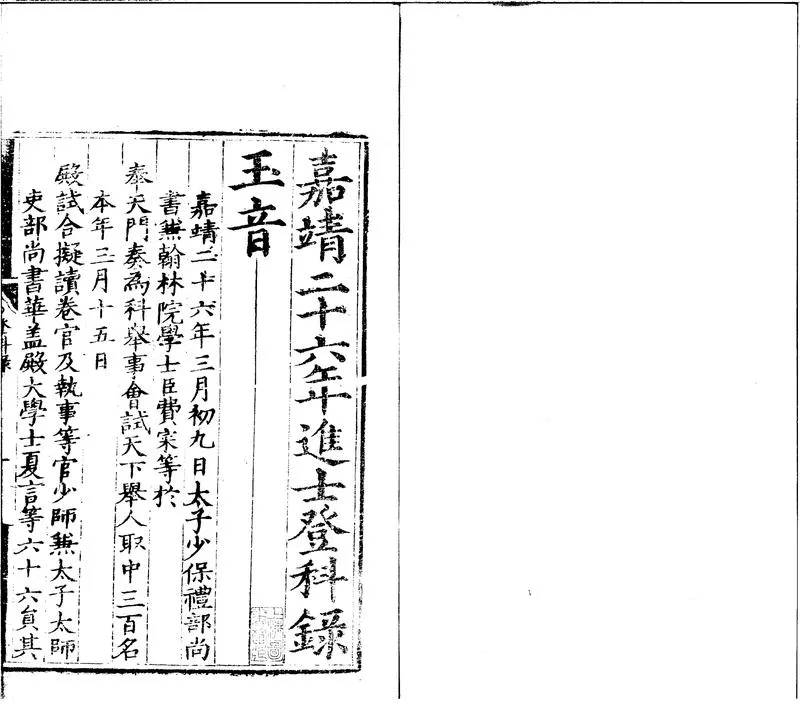 嘉靖二十六年進士登科錄
玉音
嘉靖二十六年三月初九日太子少保禮部尚
書兼翰林院學士臣費寀等於
奉天門奏為科舉事會試天下舉人取中三百名
本年三月十五日
殿試合擬讀卷官及執事等官少師兼太子太師
吏部尚書華盖殿大學士夏言等六十六員其
科錄